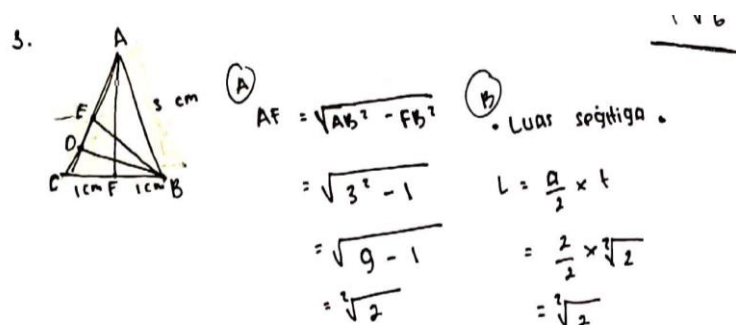 3.
A
3 cm
E
D
C 1cm F 1cm B
A
AF = √AB² - FB²
= √3² - 1
= √9 - 1
= ²√2
B
• Luas segitiga •
L = a/2 × t
= 2/2 × ²√2
= ²√2